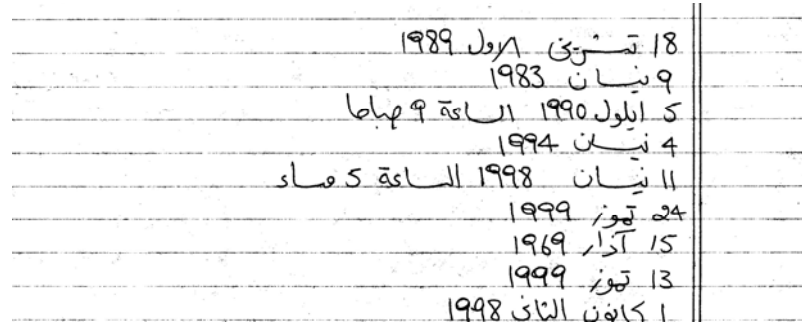 18 تشرين الاول 1989
9 نيسان 1983
5 ايلول 1990 الساعة 9 صباحا
4 نيسان 1994
11 نيسان 1998 الساعة 5 مساء
24 تموز 1999
15 آذار 1969
13 تموز 1999
1 كانون الثاني 1998